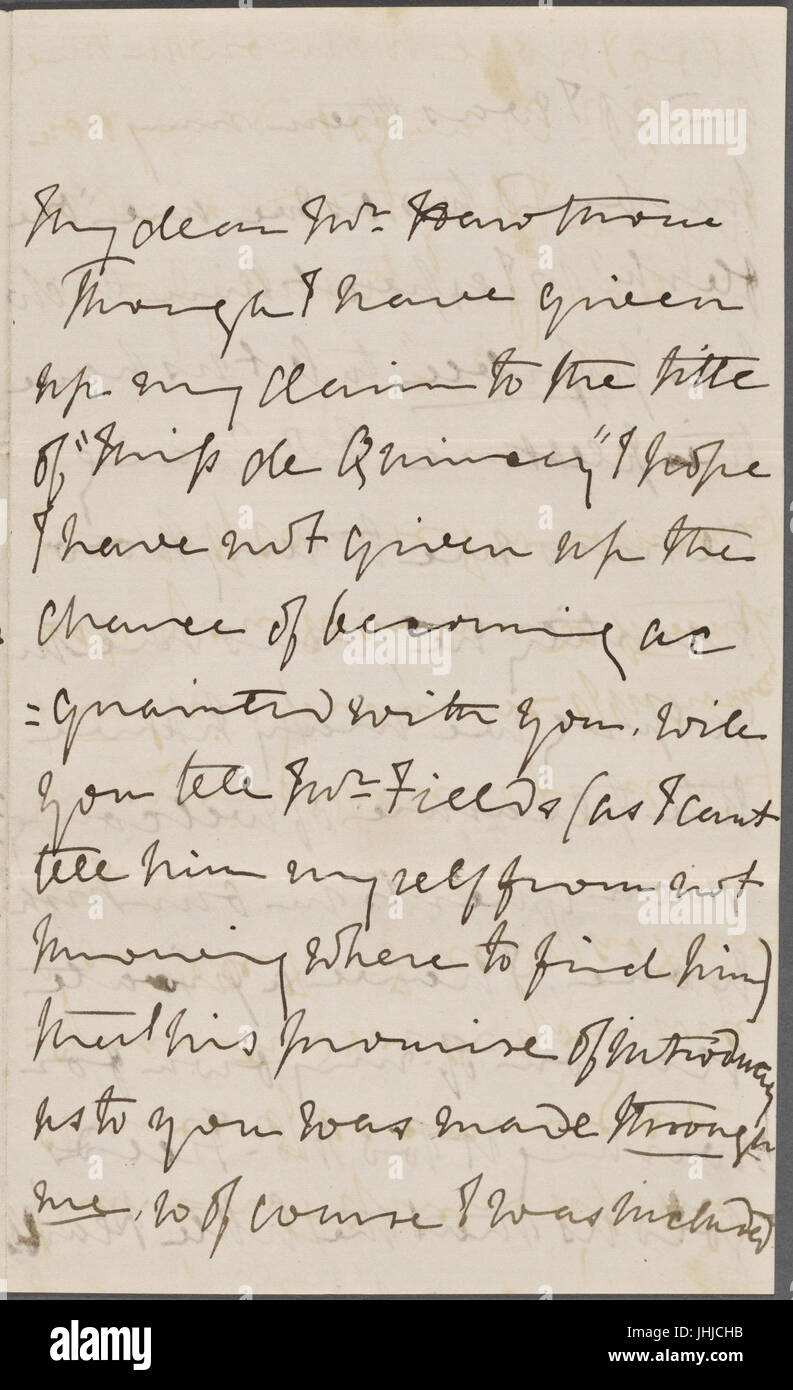 My dear Mr. Hawthorne
Though I have given
up my claim to the title
of "Miss de Quincey" I hope
I have not given up the
chance of becoming ac
=quainted with you. Will
you tell Mr. Fields (as I cant
tell him myself from not
knowing where to find him)
that his promise of introducing
us to you was made through
me, so of course I was included
alamy
Image ID: JHJCHB
www.alamy.com